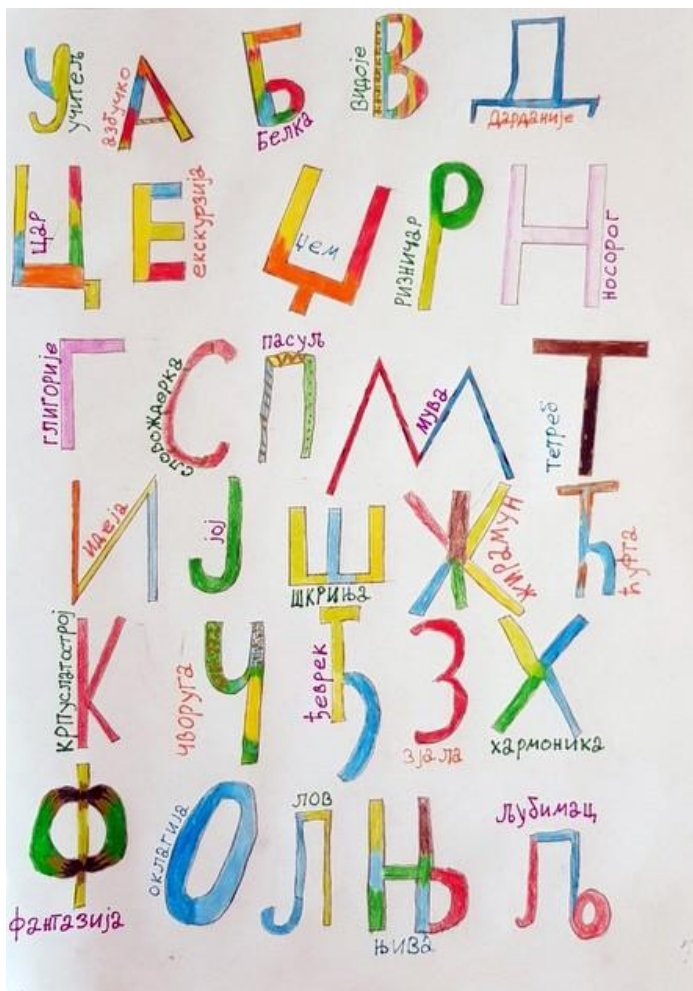 У учитељ
А азбучко
Б Белка
В Видоје
Д Дарданије
Ц цар
Е екскурзија
Џ џем
Р ризничар
Н носорог
Г Глигорије
С словождерка
П пасуљ
М мува
Т тетреб
И идеја
Ј јој
Ш шкриња
Ж жирамун
Ћ ћуфта
К
Ч чворуга
Ђ ђеврек
З зјала
Х хармоника
Ф фантазија
О оклагија
Л лов
Њ њива
Љ љубимац